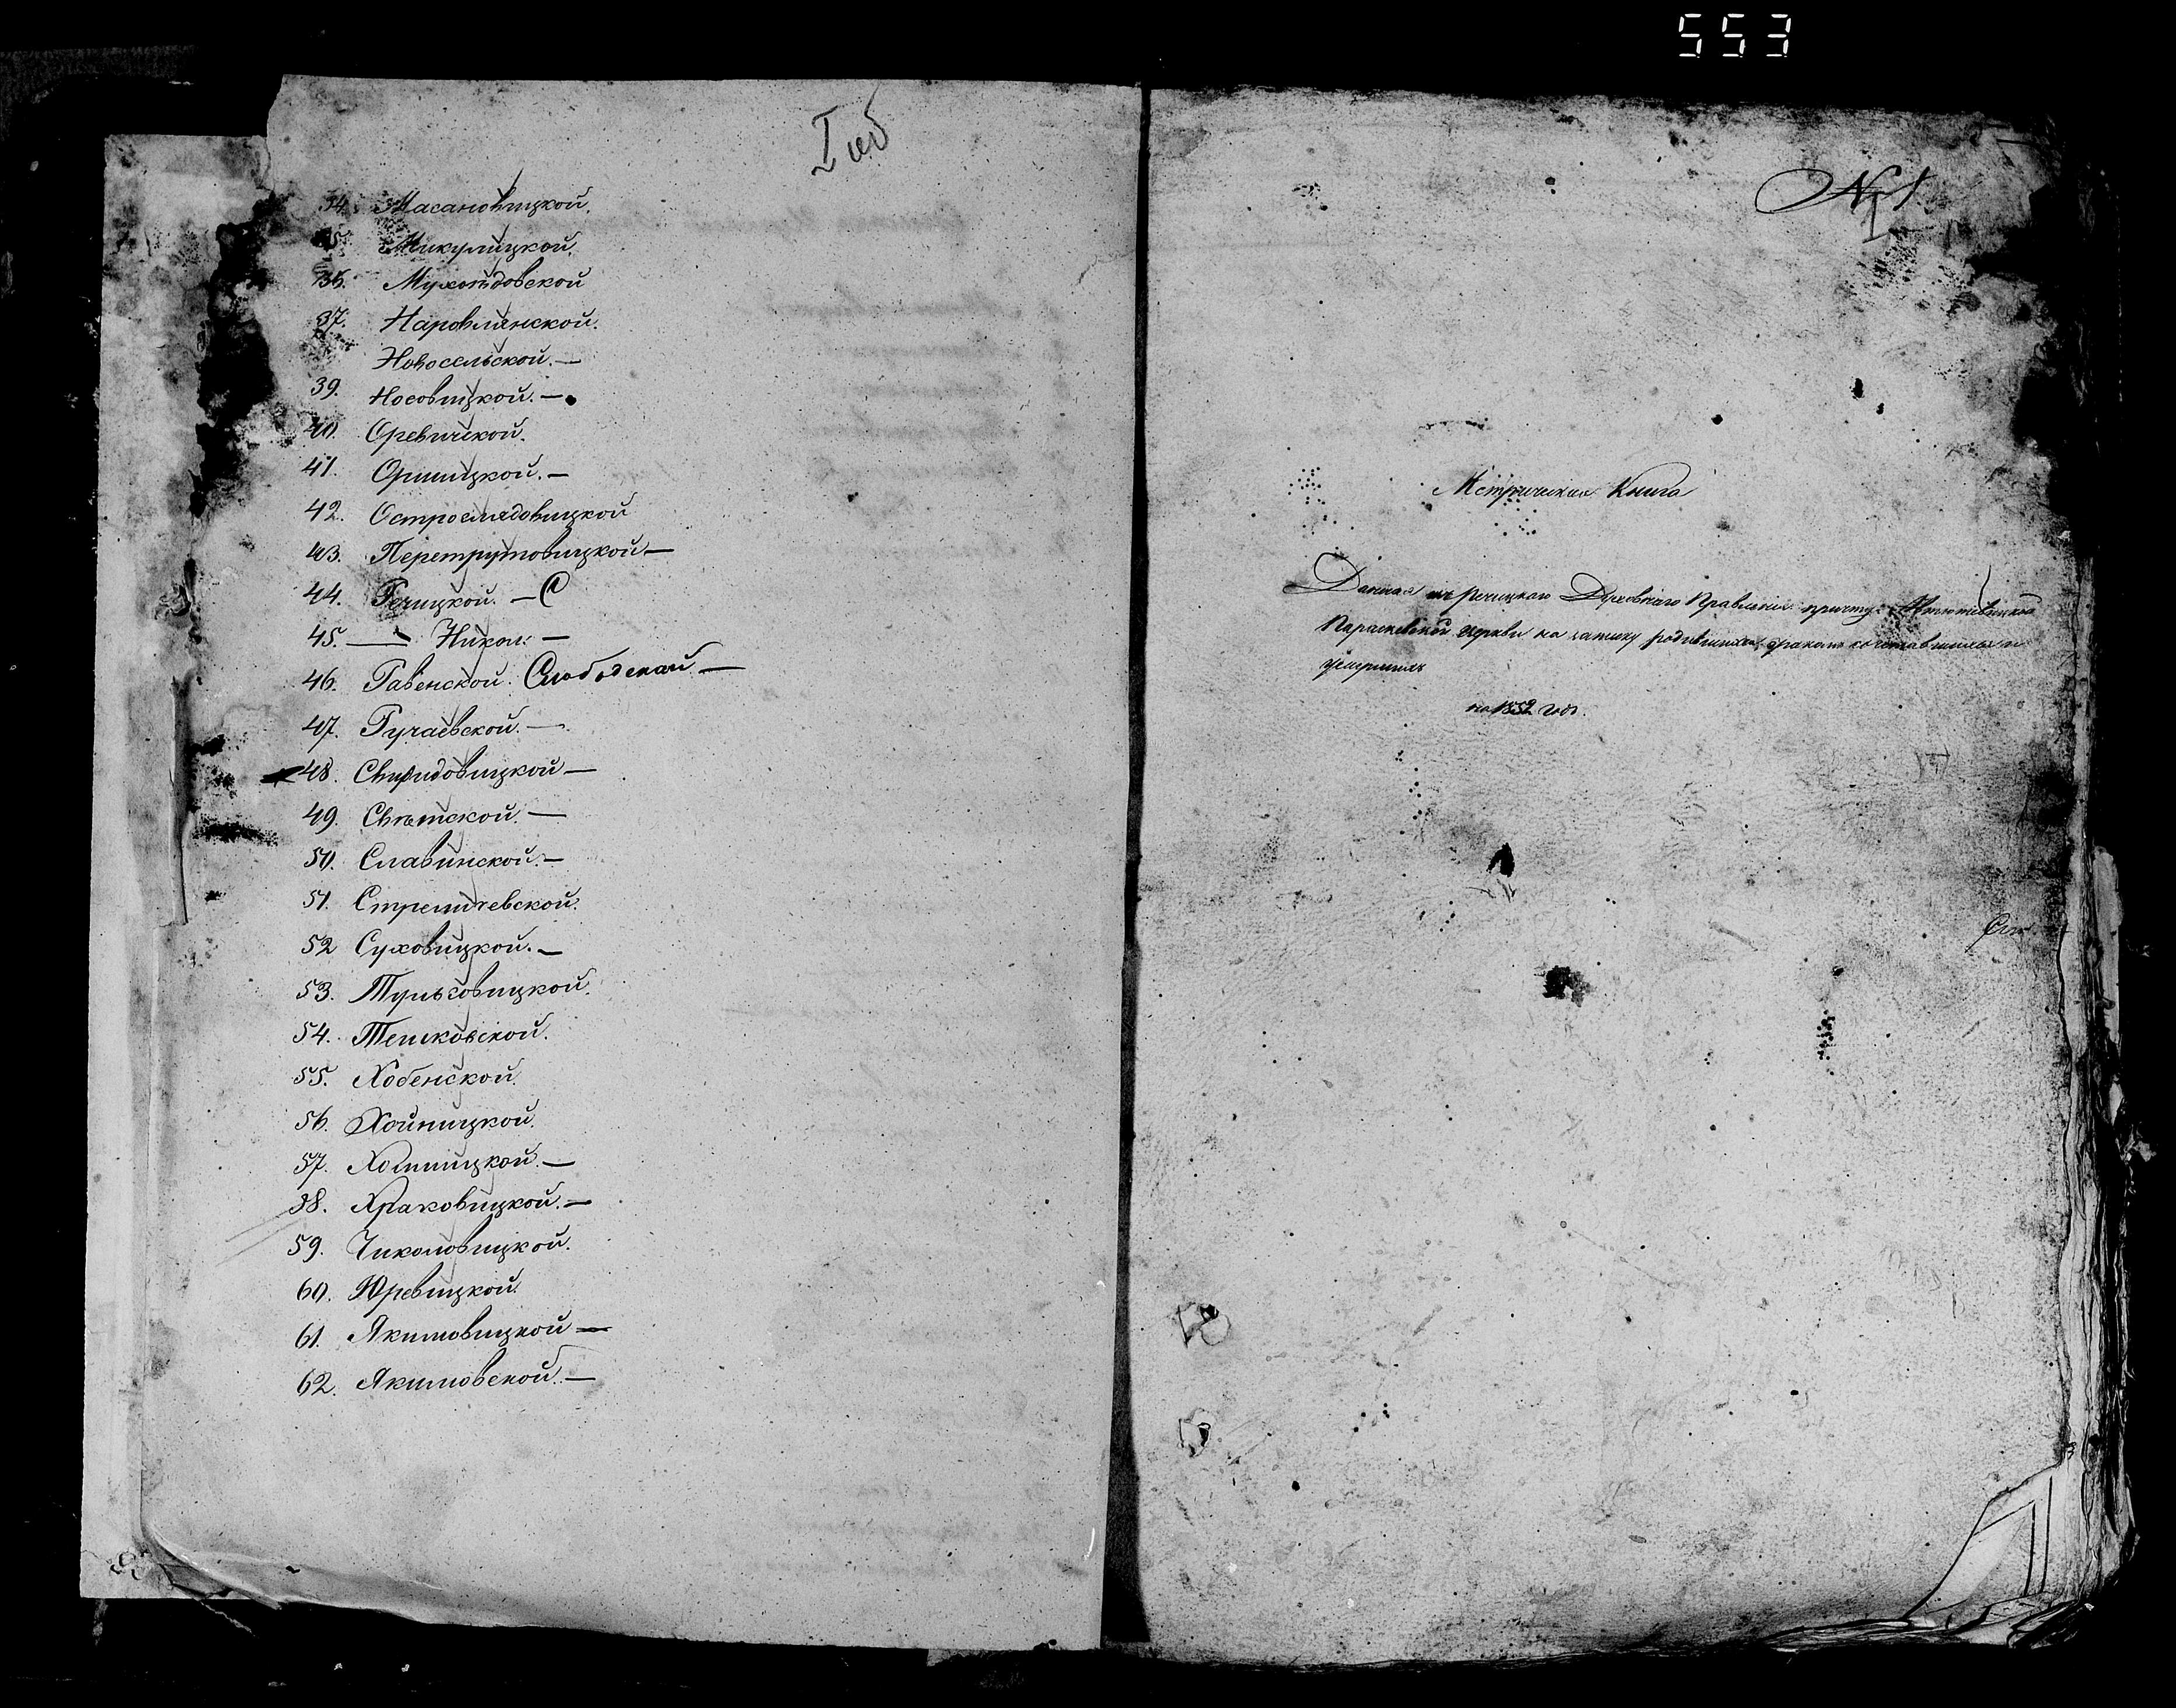 553
I об
34. Масановицкой.
35. Микулицкой.
36. Мухоѣдовской
37. Наровлянской.
Новосельской. —
39. Носовицкой. —
40. Оревичской.
41. Оршицкой. —
42. Остроглядовицкой
43. Перетрутовицкой —
44. Речицкой. — С
45. — Никол: —
46. Равенской. Слободской —
47. Ручаевской. —
48. Свиридовицкой —
49. Свѣтской. —
50. Славинской. —
51. Стреличевской.
52 Суховицкой. —
53. Тульговицкой.
54. Тешковской.
55. Хобенской.
56. Хойницкой.
57. Холмицкой. —
58. Храковицкой. —
59. Чиколовицкой.
60. Юревицкой.
61. Якимовицкой —
62. Якимовской. —
№ 1
1
Метрическая Книга
Данная изъ Речицкаго Духовнаго Правленія причту
Параскевской церкви на записку родившихся, бракомъ сочетавшихся и
умершихъ
на 1852 годъ.